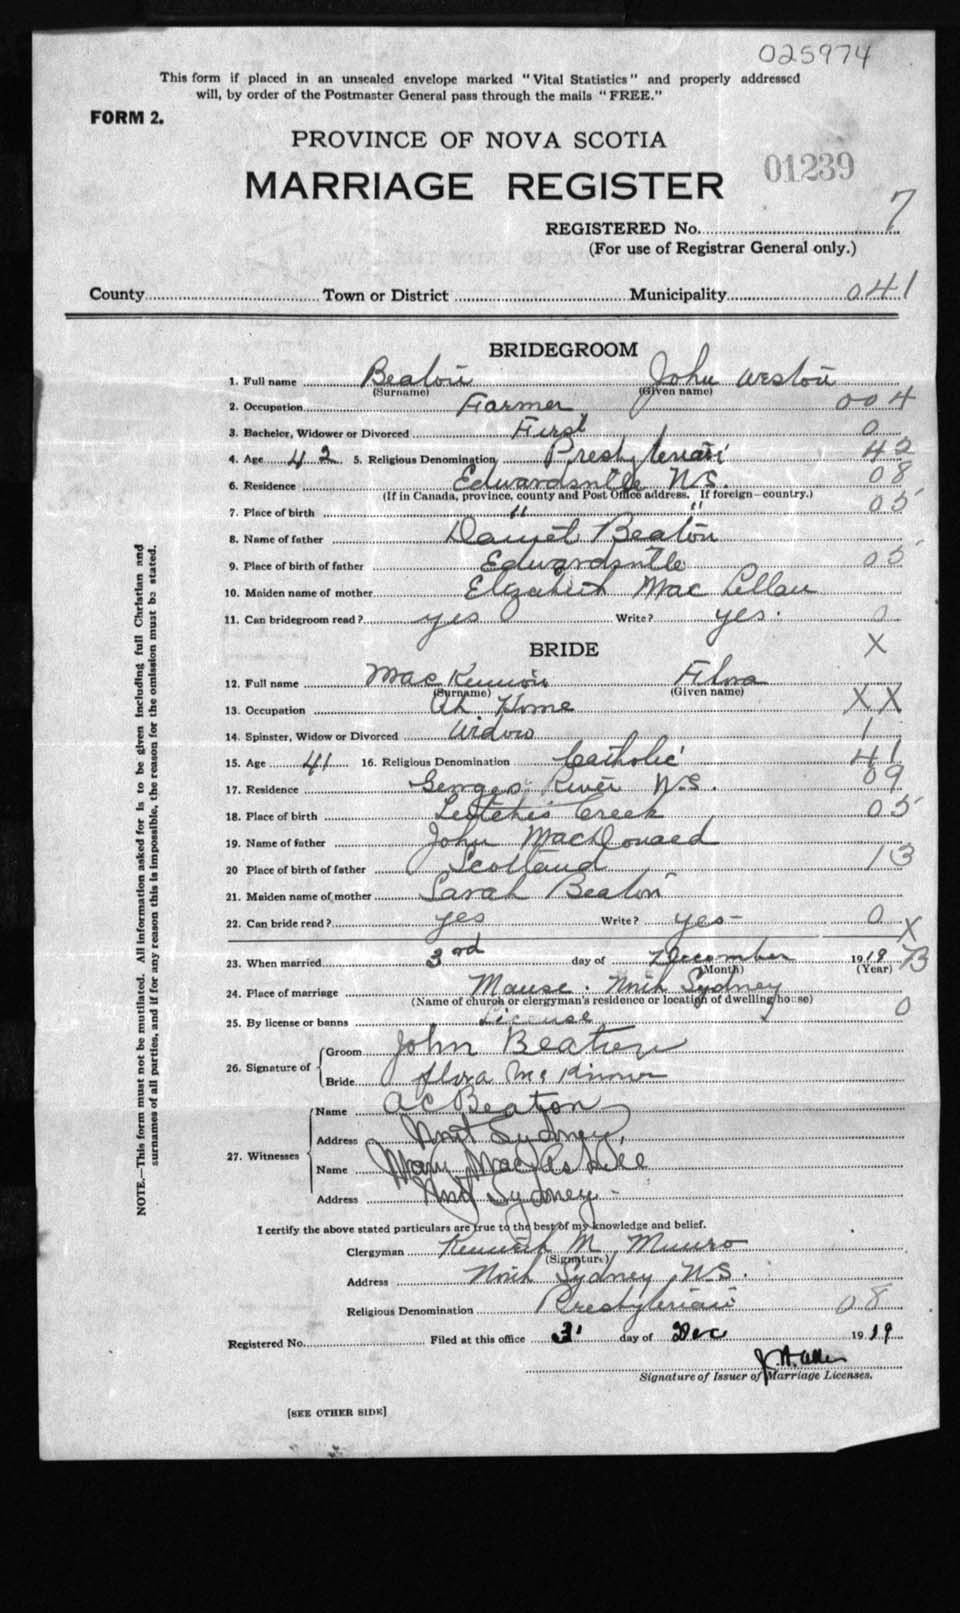 025974
This form if placed in an unsealed envelope marked "Vital Statistics" and properly addressed
will, by order of the Postmaster General pass through the mails "FREE."
FORM 2.
PROVINCE OF NOVA SCOTIA
01239
MARRIAGE REGISTER
REGISTERED No. 7
(For use of Registrar General only.)
County Town or District Municipality 041
BRIDEGROOM
1. Full name Beaton John Weston
(Surname) (Given name)
2. Occupation Farmer 004
3. Bachelor, Widower or Divorced First 0
4. Age 42 5. Religious Denomination Presbyterian 42
6. Residence Edwardsville N.S. 08
(If in Canada, province, county and Post Office address. If foreign—country.)
7. Place of birth " " 05
8. Name of father Daniel Beaton
9. Place of birth of father Edwardsville 05
10. Maiden name of mother Elizabeth MacLellan
11. Can bridegroom read? yes Write? yes. 0
BRIDE X
12. Full name MacKinnon Flora
(Surname) (Given name)
13. Occupation At Home XX
14. Spinster, Widow or Divorced Widow 1
15. Age 41 16. Religious Denomination Catholic 41
17. Residence Georges River N.S. 09
18. Place of birth Leitches Creek 05
19. Name of father John MacDonald
20 Place of birth of father Scotland 13
21. Maiden name of mother Sarah Beaton
22. Can bride read? yes Write? yes- 0
X
23. When married 3rd day of December 1919 73
(Month) (Year)
24. Place of marriage Manse. North Sydney
(Name of church or clergyman's residence or location of dwelling house) 0
25. By license or banns License
26. Signature of Groom John Beaton
Bride Flora McKinnon
27. Witnesses Name A C Beaton
Address North Sydney,
Name Mary MacAskill
Address Nth Sydney-
I certify the above stated particulars are true to the best of my knowledge and belief.
Clergyman Kenneth M. Munro
(Signature)
Address North Sydney, N.S.
Religious Denomination Presbyterian 08
Registered No. Filed at this office 31 day of Dec 1919
Signature of Issuer of Marriage Licenses.
[SEE OTHER SIDE]
NOTE.—This form must not be mutilated. All information asked for is to be given including full Christian and
surnames of all parties, and if for any reason this is impossible, the reason for the omission must be stated.